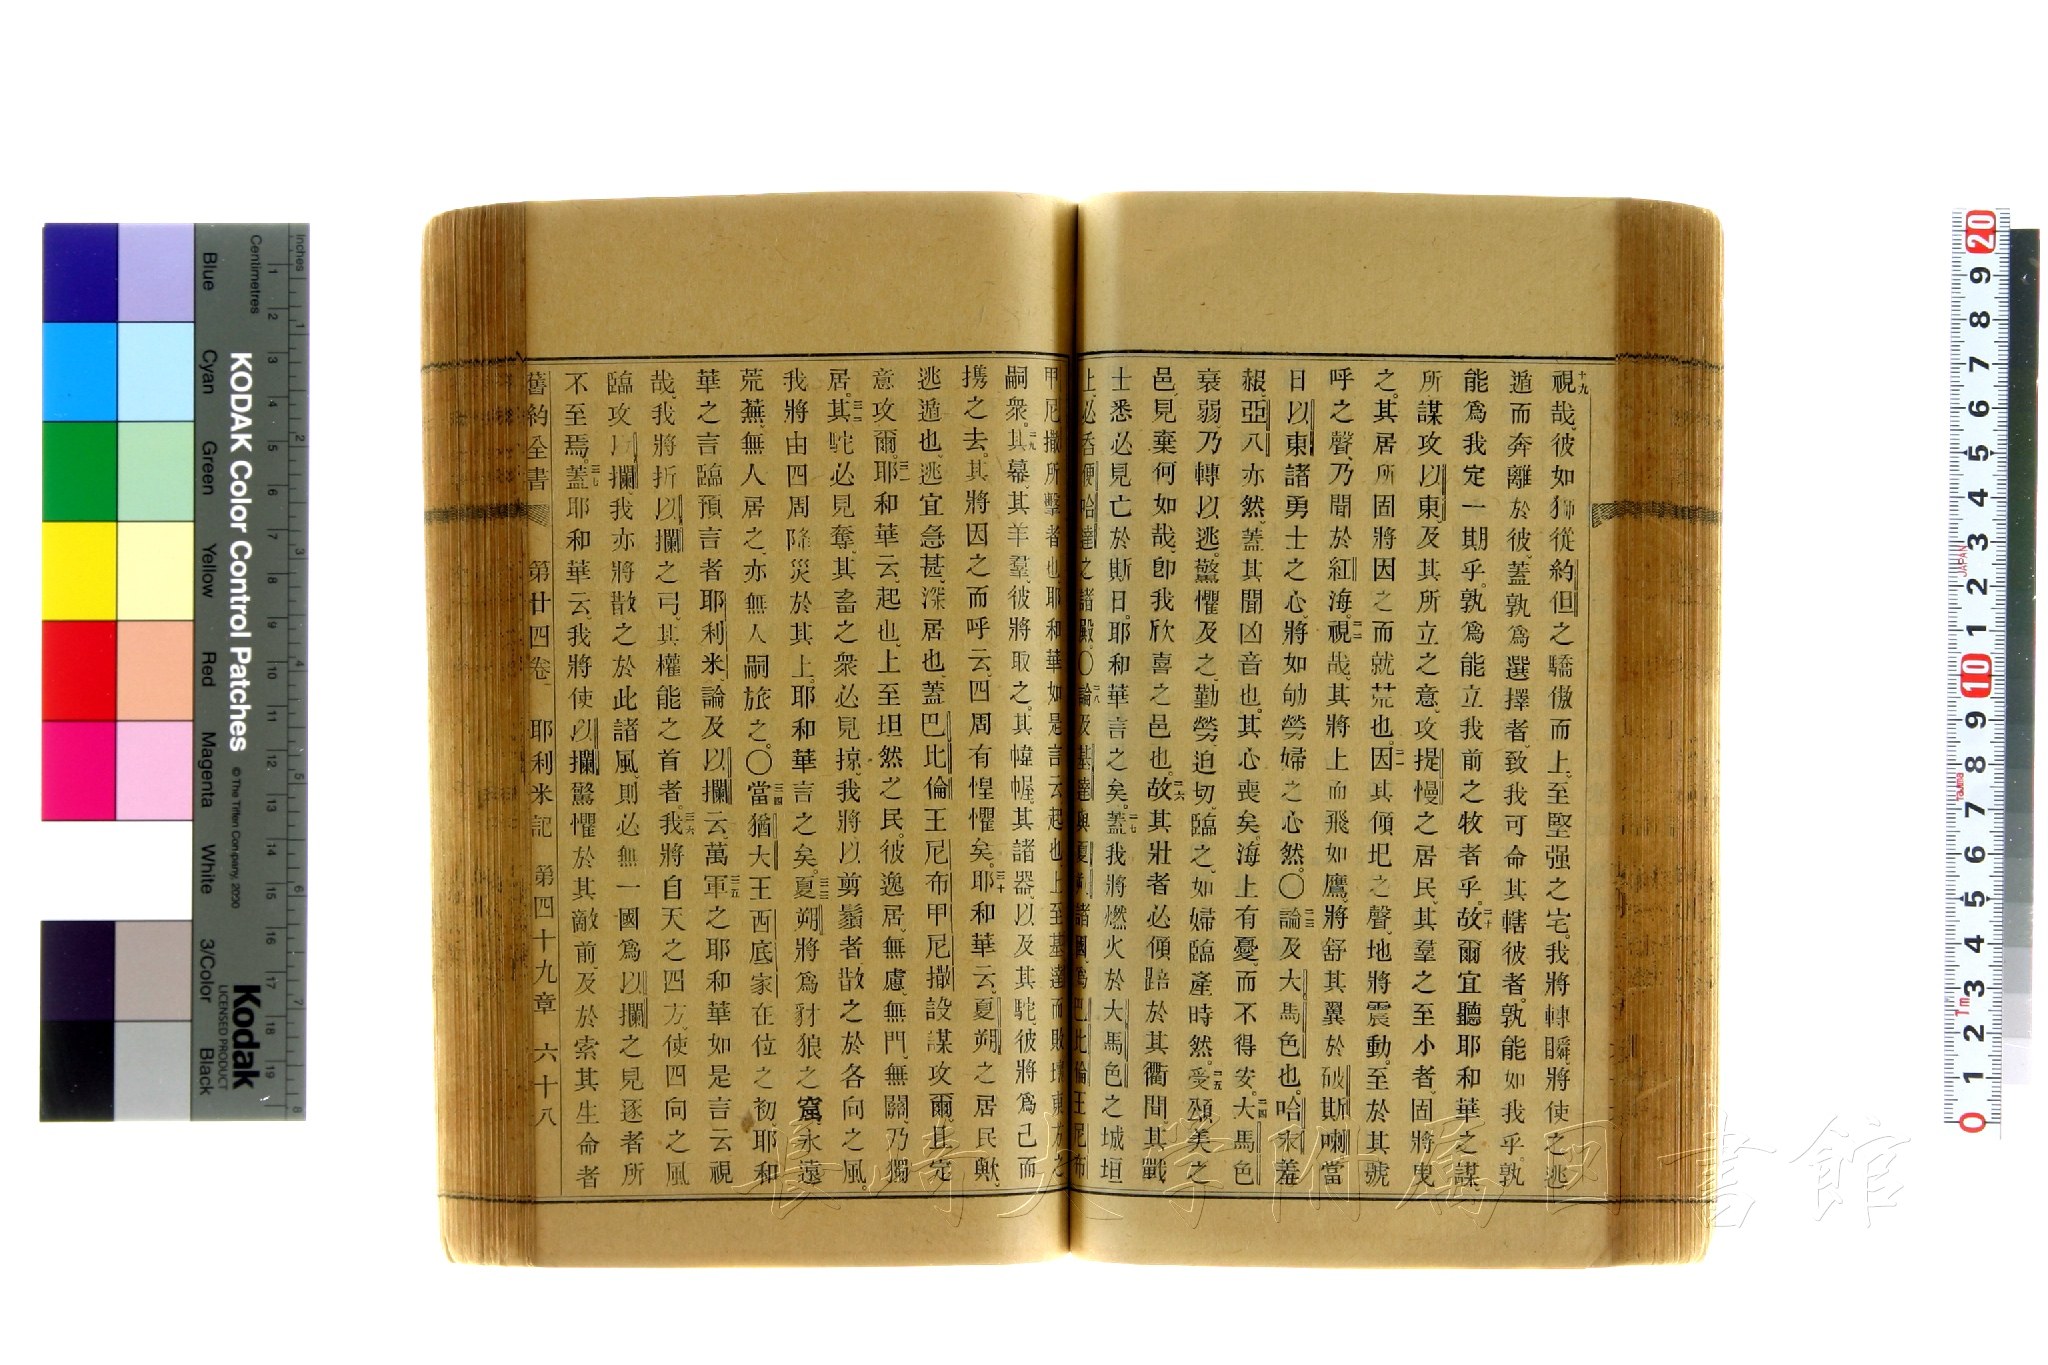 十九
視哉、彼如獅從約但之驕傲而上、至堅强之宅。我將轉瞬將使之逃
遁而奔離於彼、蓋孰爲選擇者、致我可命其轄彼者。孰能如我乎。孰
能爲我定一期乎。孰爲能立我前之牧者乎。二十故爾宜聽耶和華之謀、
所謀攻以東、及其所立之意、攻提慢之居民、其羣之至小者、固將曳
之。其居所固將因之而就荒也。二一因其傾圯之聲、地將震動。至於其號
呼之聲、乃聞於紅海。二二視哉、其將上而飛如鷹、將舒其翼於破斯喇、當
日以東諸勇士之心、將如劬勞婦之心然。〇二三論及大馬色也。哈末羞
赧、亞八亦然、蓋其聞凶音也。其心喪矣。海上有憂、而不得安。二四大馬色
衰弱、乃轉以逃。驚懼及之、勤勞迫切、臨之、如婦臨產時然。二五受頌美之
邑、見棄何如哉、卽我欣喜之邑也。二六故其壯者必傾踣於其衢間、其戰
士悉必見亡於斯日。耶和華言之矣。二七蓋我將燃火於大馬色之城垣
上、必吞便哈達之諸殿。〇二八論及基達與夏朔諸國、爲巴比倫王尼布
甲尼撒所擊者也、耶和華如是言云、起也、上至基達、而敗壞東方之
嗣衆。二九其幕、其羊羣、彼將取之。其幃幄、其諸器、以及其駝、彼將爲己而
携之去。其將因之而呼云、四周有惶懼矣。三十耶和華云、夏朔之居民歟、
逃遁也、逃宜急甚、深居也、蓋巴比倫王尼布甲尼撒設謀攻爾。且定
意攻爾。三一耶和華云、起也、上至坦然之民。彼逸居、無慮、無門、無關、乃獨
居。三二其駝必見奪、其畜之衆必見掠、我將以剪鬚者散之於各向之風。
我將由四周降災於其上。耶和華言之矣。三三夏朔將爲豺狼之窟、永遠
荒蕪、無人居之、亦無人嗣旅之。〇三四當猶大王西底家在位之初、耶和
華之言臨預言者耶利米、論及以攔云。三五萬軍之耶和華如是言云、視
哉、我將折以攔之弓、其權能之首者。三六我將自天之四方、使四向之風
臨攻以攔、我亦將散之於此諸風、則必無一國爲以攔之見逐者所
不至焉。三七蓋耶和華云、我將使以攔驚懼於其敵前、及於索其生命者
舊約全書 第廿四卷 耶利米記 第四十九章 六十八
長崎大学附属図書館
Inches
Centimetres
KODAK Color Control Patches
© The Tiffen Company, 2000
Blue
Cyan
Green
Yellow
Red
Magenta
White
3/Color
Black
Kodak
LICENSED PRODUCT
JAPAN
Tajima
1m